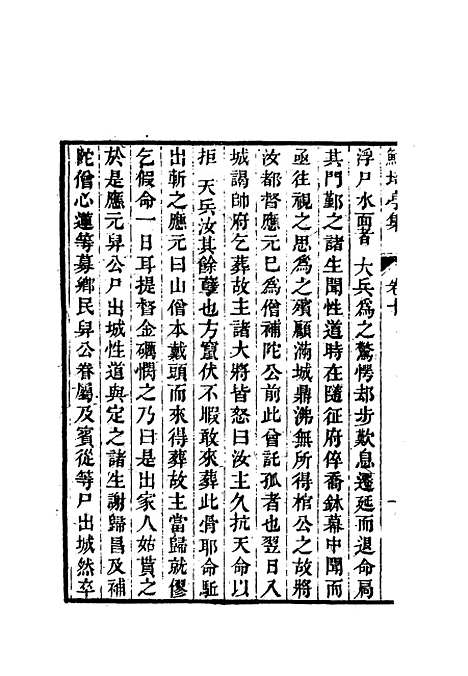 鮚埼亭集 卷十 一
浮尸水面者　大兵爲之驚愕却步歎息遷延而退命局
其門鄞之諸生聞性道時在隨征府倅喬鉢幕中聞而
亟往視之思爲之殯顧滿城鼎沸無所得棺公之故將
汝都督應元已爲僧補陀公前此曾託孤者也翌日入
城謁帥府乞葬故主諸大將皆怒曰汝主久抗天命以
拒　天兵汝其餘孽也方竄伏不暇敢來葬此骨耶命駈
出斬之應元曰山僧本戴頭而來得葬故主當歸就僇
乞假命一日耳提督金礪憫之乃曰是出家人姑貰之
於是應元舁公尸出城性道與定之諸生謝歸昌及補
陀僧心蓮等募鄉民舁公眷屬及賓從等尸出城然卒